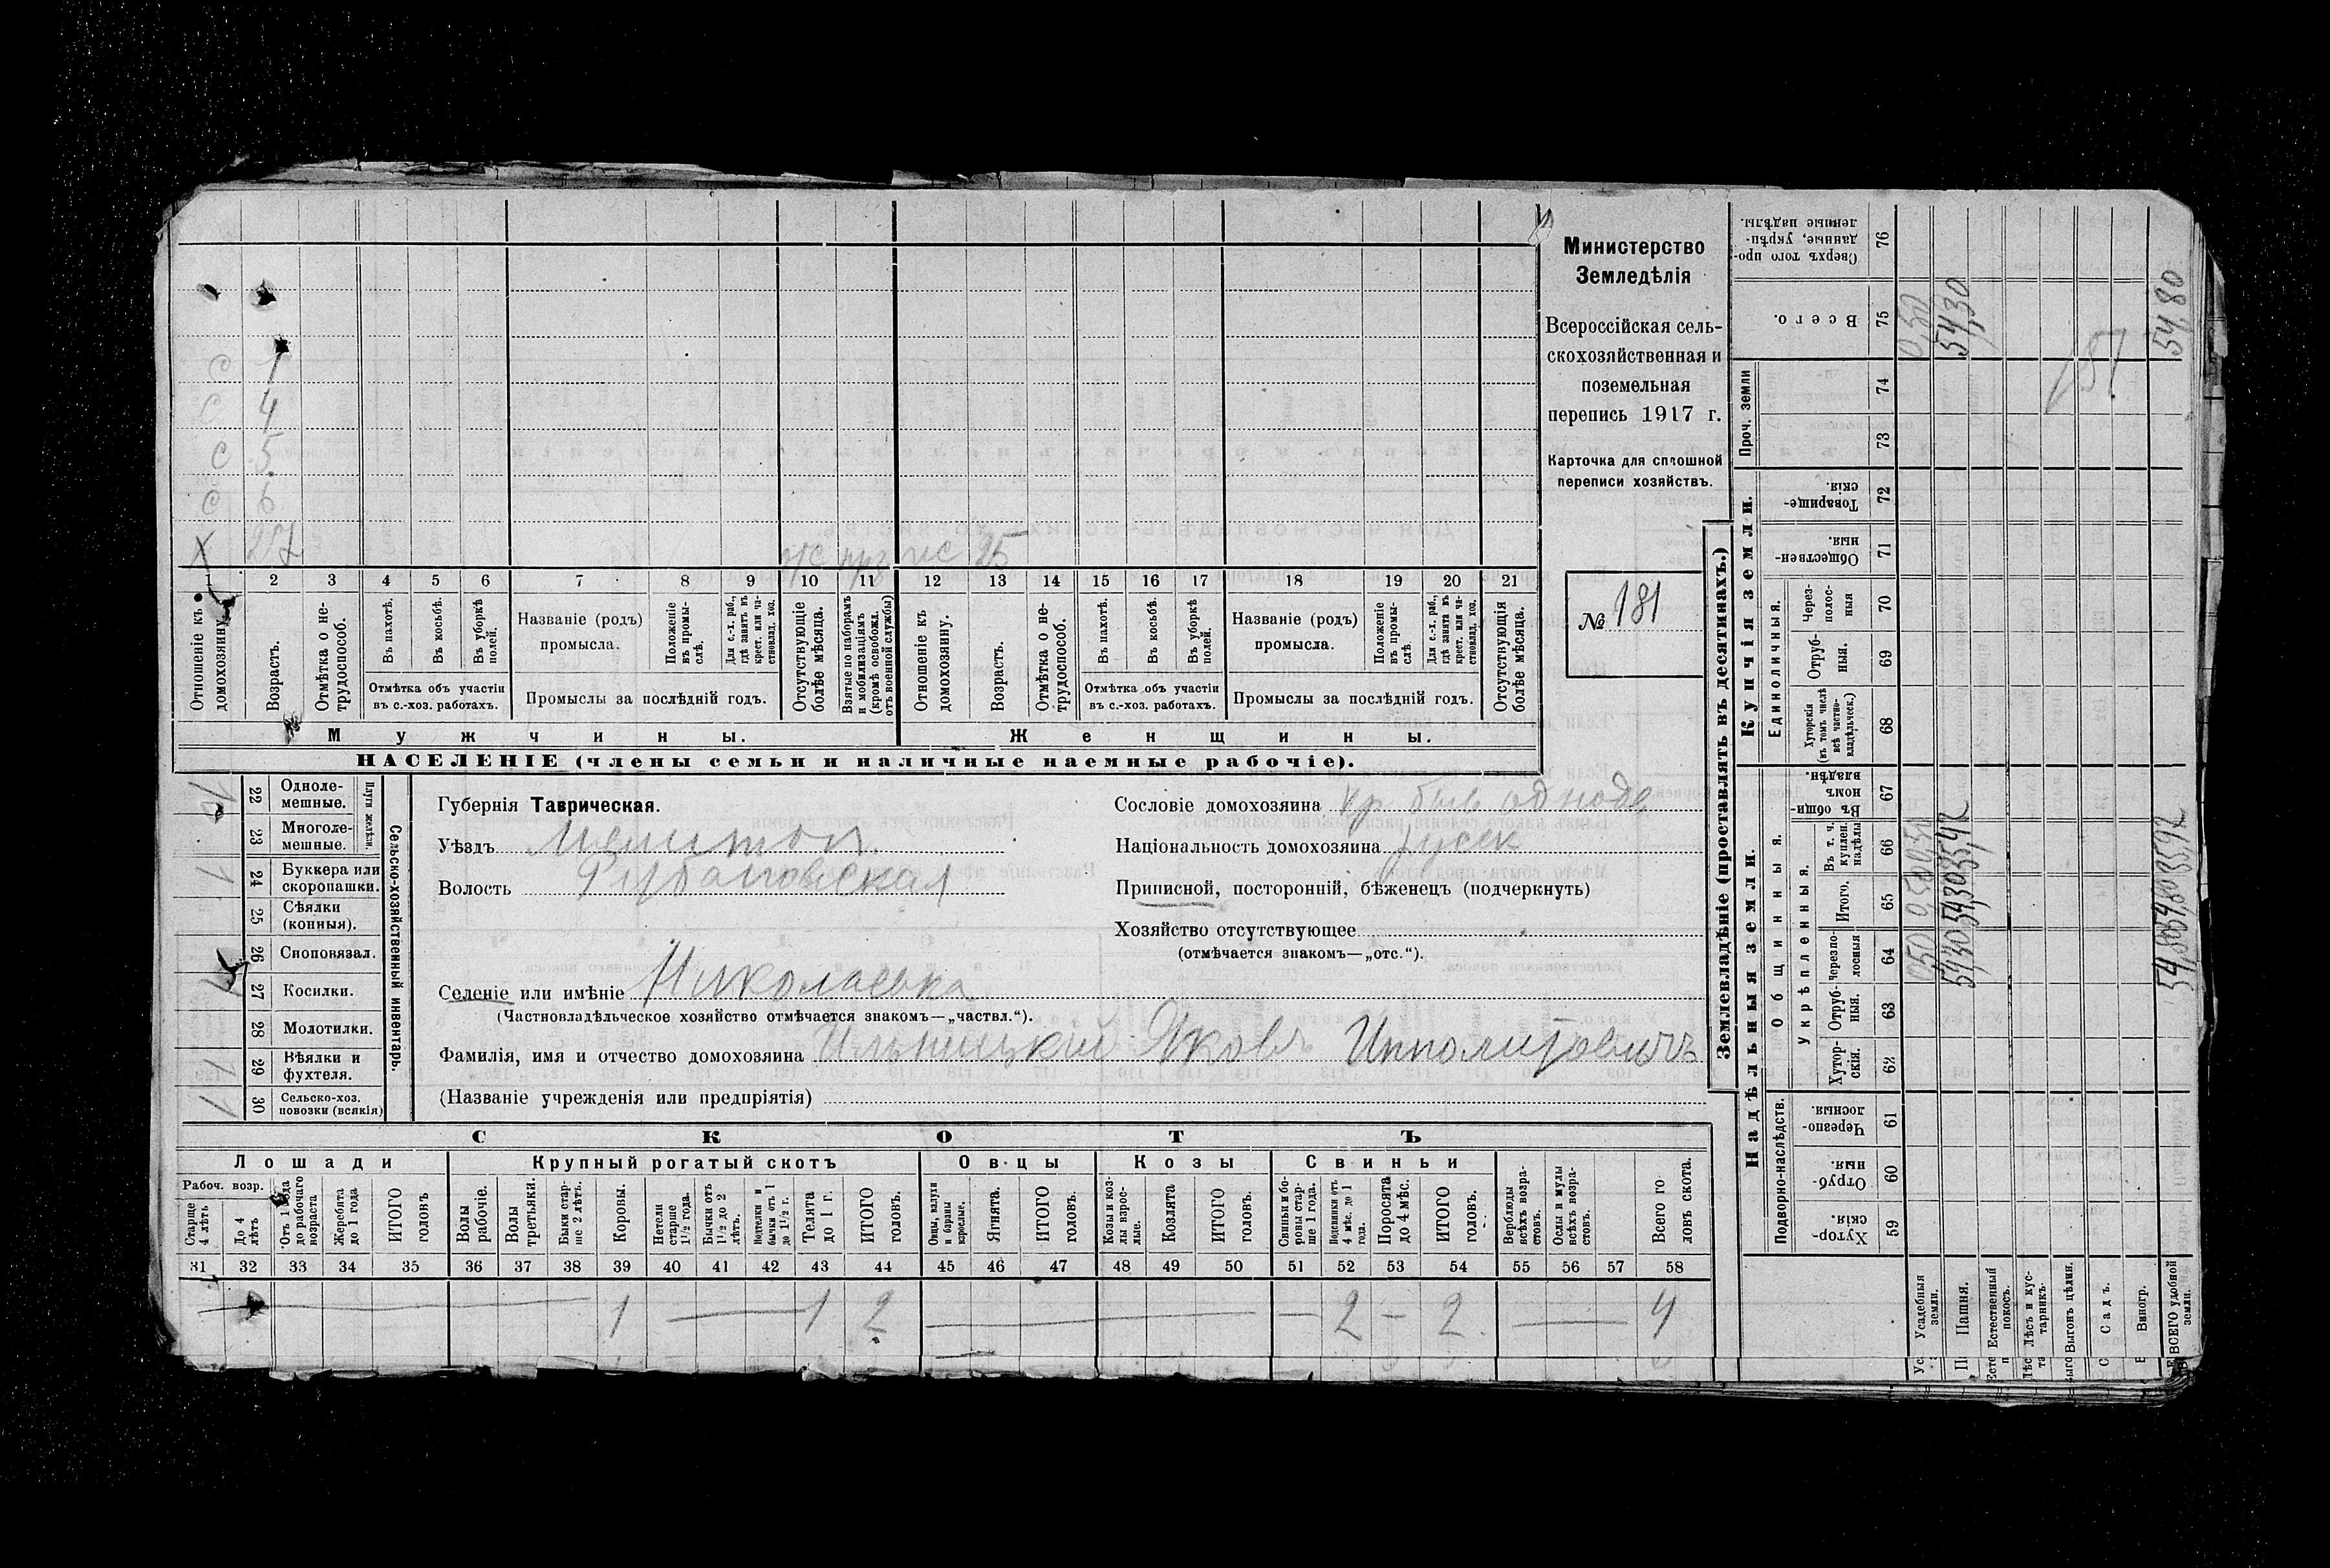 Министерство
Земледѣлія
Всероссійская сель-
скохозяйственная и
поземельная
перепись 1917 г.
Карточка для сплошной
переписи хозяйствъ.
№ 181
С 1
С 4
С 5
С 6
Х 27
отс
25
1 2 3 4 5 6 7 8 9 10 11 12 13 14 15 16 17 18 19 20 21
Отношеніе къ домохозяину.
Возрастъ.
Отмѣтка о не-трудоспособ.
Въ пахотѣ.
Въ косьбѣ.
Въ уборкѣ полей.
Отмѣтка объ участіи
въ с.-хоз. работахъ.
Названіе (родъ)
промысла.
Положеніе въ промы-слѣ.
Для с.-х. раб., гдѣ занятъ въ крест. или ча-стновлад. хоз.
Промыслы за послѣдній годъ.
Отсутствующіе болѣе мѣсяца.
Взятые по наборамъ и мобилизаціямъ (кромѣ освобожд. отъ военной службы)
Отношеніе къ домохозяину.
Возрастъ.
Отмѣтка о не-трудоспособ.
Въ пахотѣ.
Въ косьбѣ.
Въ уборкѣ полей.
Отмѣтка объ участіи
въ с.-хоз. работахъ.
Названіе (родъ)
промысла.
Положеніе въ промы-слѣ.
Для с.-х. раб., гдѣ занята въ крест. или ча-стновлад. хоз.
Промыслы за послѣдній годъ.
Отсутствующія болѣе мѣсяца.
Мужчины.
Женщины.
НАСЕЛЕНІЕ (члены семьи и наличные наемные рабочіе).
Сельско-хозяйственный инвентарь.
Плуги желѣзн.
22 Одноле-мешные.
23 Многоле-мешные.
24 Буккера или скоропашки.
25 Сѣялки (конныя).
26 Сноповязал.
27 Косилки.
28 Молотилки.
29 Вѣялки и фухтеля.
30 Сельско-хоз. повозки (всякія)
Губернія Таврическая.
Уѣздъ Мелитоп
Волость Рубановская
Селеніе или имѣніе Николаевка
(Частновладѣльческое хозяйство отмѣчается знакомъ—„частвл.“).
Фамилія, имя и отчество домохозяина Ильницкій Яковъ Ипполитовичъ
(Названіе учрежденія или предпріятія)
Сословіе домохозяина кр быв однодв
Національность домохозяина русск
Приписной, посторонній, бѣженецъ (подчеркнуть)
Хозяйство отсутствующее
(отмѣчается знакомъ—„отс.“).
СКОТЪ
Лошади
Крупный рогатый скотъ
Овцы
Козы
Свиньи
Рабоч. возр.
Старше 4 лѣтъ
До 4 лѣтъ
Отъ 1 года до рабочаго возраста
Жеребята до 1 года
ИТОГО головъ
Волы рабочіе.
Волы третьяки.
Быки стар-ше 2 лѣтъ.
Коровы.
Нетели старше 1½ года.
Бычки отъ 1½ до 2 лѣтъ.
Нетелки и бычки отъ 1 до 1½ г.
Телята до 1 г.
ИТОГО головъ.
Овцы, валухи и бараны взрослые.
Ягнята.
ИТОГО головъ.
Козы и коз-лы взрос-лые.
Козлята
ИТОГО головъ.
Свиньи и бо-ровы стар-ше 1 года.
Подсвинки отъ 4 мѣс. до 1 года.
Поросята до 4 мѣс.
ИТОГО головъ.
Верблюды всѣхъ возра-стовъ.
Ослы и мулы всѣхъ возра-стовъ.
Всего го-ловъ скота.
31 32 33 34 35 36 37 38 39 40 41 42 43 44 45 46 47 48 49 50 51 52 53 54 55 56 57 58
— 1 — 1 2 — — 2 — 2 — 4
Землевладѣніе (проставлять въ десятинахъ.)
Надѣльныя земли.
Купчія земли.
Подворно-наслѣдств.
Общинныя.
Укрѣпленныя.
Единоличныя.
Проч. земли
59 Хутор-скія.
60 Отруб-ныя.
61 Черезпо-лосныя.
62 Хутор-скія.
63 Отруб-ныя.
64 Черезпо-лосныя
65 Итого.
66 Въ т. ч. куплен. надѣлы
67 Въ общи-номъ владѣн.
68 Хуторскія (въ томъ числѣ всѣ частно-владѣльческ.)
69 Отруб-ныя.
70 Через-полос-ныя
71 Обществен-ныя.
72 Товарище-скія.
73
74
75 Всего.
76 Сверхъ того про-данные, укрѣп-ленные надѣлы.
Усадебныя земли. 0,50 0,50 0,50 0,50
Пашня. 54,30 54,30 35,42 54,30
Естественный покосъ.
Лѣсъ и кус-тарникъ.
Выгонъ цѣлин.
Садъ.
Виногр.
ВСЕГО удобной земли. 54,80 54,80 35,92 54,80
181